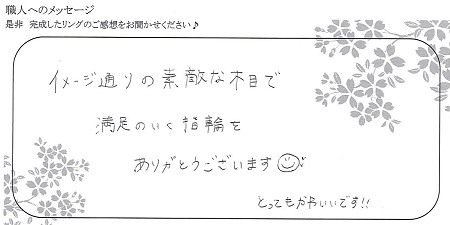 職人へのメッセージ
是非 完成したリングのご感想をお聞かせください♪
イメージ通りの素敵な木目で
満足のいく指輪を
ありがとうございます
とってもかわいいです!!